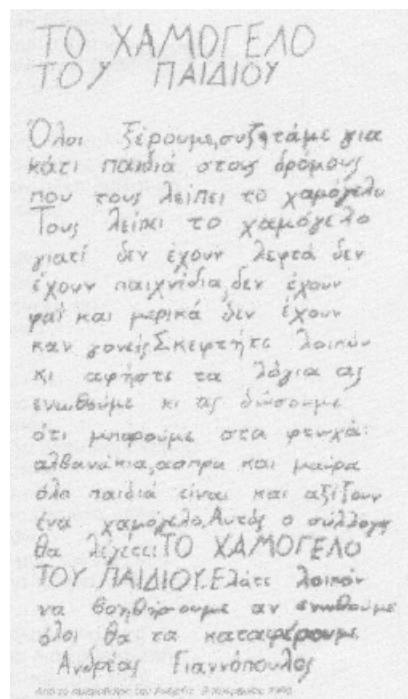 ΤΟ ΧΑΜΟΓΕΛΟ
ΤΟΥ ΠΑΙΔΙΟΥ
Όλοι ξέρουμε,συζητάμε για
κάτι παιδιά στους δρόμους
που τους λείπει το χαμόγελο
Τους λείπει το χαμόγελο
γιατί δεν έχουν λεφτά δεν
έχουν παιχνίδια,δεν έχουν
φαΐ και μερικά δεν έχουν
καν γονείς.Σκεφτήτε λοιπόν
κι αφήστε τα λόγια ας
ενωθούμε κι ας δώσουμε
ότι μπορούμε στα φτωχά:
αλβανάκια,ασπρα και μαύρα
όλα παιδιά είναι και αξίζουν
ένα χαμόγελο.Αυτός ο σύλλογος
θα λέγετε:ΤΟ ΧΑΜΟΓΕΛΟ
ΤΟΥ ΠΑΙΔΙΟΥ.Ελάτε λοιπόν
να βοηθήσουμε αν ενωθούμε
όλοι θα τα καταφέρουμε.
Ανδρέας Γιαννόπουλος
Από το ημερολόγιο του Ανδρέα